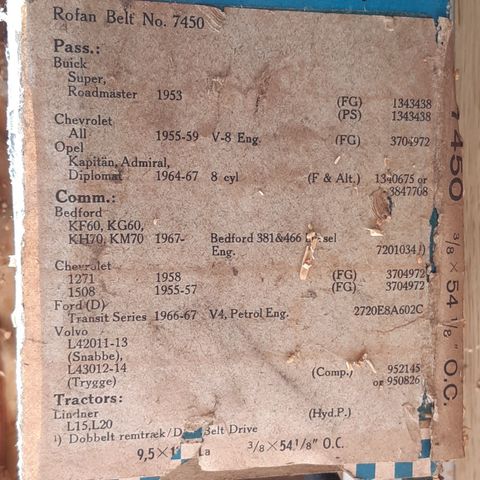 Rofan Belt No. 7450
Pass.:
Buick
Super,
Roadmaster 1953
(FG) 1343438
(PS) 1343438
Chevrolet
All 1955-59 V-8 Eng. (FG) 3704972
Opel
Kapitän, Admiral,
Diplomat 1964-67 8 cyl (F & Alt.) 1340675 or
3847708
Comm.:
Bedford
KF60, KG60,
KH70, KM70 1967- Bedford 381&466
Eng. 7201034 ¹)
Chevrolet
1271 1958 (FG) 3704972
1508 1955-57 (FG) 3704972
Ford (D)
Transit Series 1966-67 V4, Petrol Eng. 2720E8A602C
Volvo
L42011-13
(Snabbe),
L43012-14 (Comp.) 952145
(Trygge) or 950826
Tractors:
Lindner (Hyd.P.)
L15,L20
¹) Dobbelt remtræk/ Belt Drive
9,5× La 3/8×54.1/8" O.C.
7450 3/8 × 54 1/8" O.C.